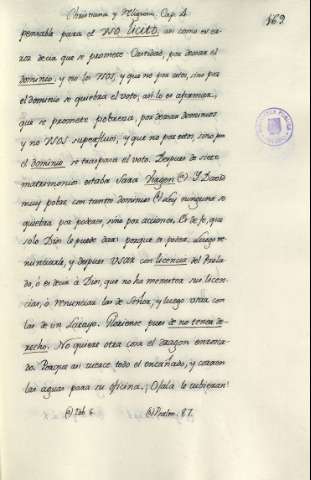 Christiana y Religiosa. Cap. 4.
169
pensable para el uso licito, asi como es er-
ror decir que se promete Castidad, por dexar el
dominio, y no los usos, y que no por esto, sino por
el dominio se quiebra el voto, asi lo es afirmar,
que se promete pobreza, por dexar dominios
y no usos superfluos, y que no por estos, sino por
el dominio se traspasa el voto. Despues de siete
matrimonios estaba Sara Virgen (a) Y David
muy pobre con tantos dominios (b) Ley ninguna se
quiebra por poderes, sino por acciones. Es de fe, que
solo Dios le puede dar: porque es poder. Luego re-
nunciarla, y despues usar con licencia del Prela-
do, ò es decir à Dios, que no ha menester sus licen-
cias, ò renunciar las de Señor, y luego usar con
las de un Lacayo. Gloriense pues de no tener de-
recho. No quiere otra cosa el dragon enrosca-
do. Porque asi el cerco todo el encañado, y corran
las aguas para su oficina. ¡Ojala le tubieran!
(a) Tob. 6. (b) Psalm. 87.